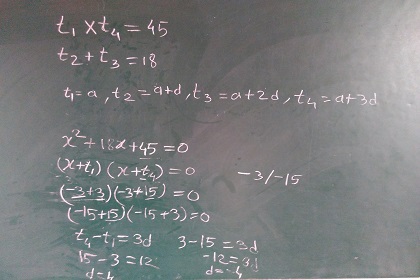 t₁ × t₄ = 45
t₂ + t₃ = 18
t₁ = a, t₂ = a+d, t₃ = a+2d, t₄ = a+3d
x² + 18x + 45 = 0
(x+t₁) (x+t₄) = 0
-3/-15
(-3+3)(-3+15) = 0
(-15+15)(-15+3) = 0
t₄ - t₁ = 3d 3 - 15 = 3d
15 - 3 = 12 -12 = 3d
d = 4 d = -4